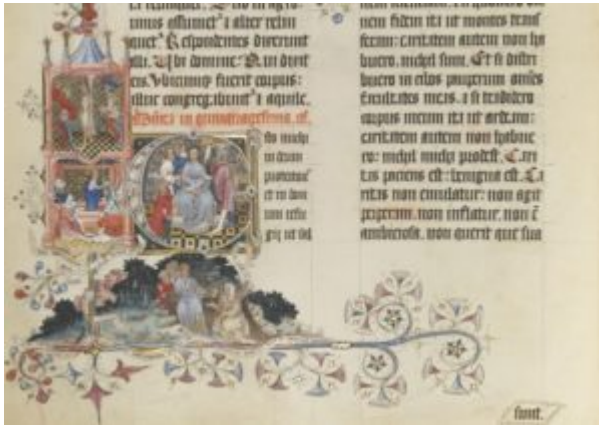 unus assumet' ⁊ alter relin
quet' Respondentes dixerunt
illi. Ubi domine. Qui dixit
eis. Vbicumq fuerit corpus:
illuc congregabunt' ⁊ aquile.
in quinquagesima. of.
sto michi
in deum
et in
refu
gii ut sal
nem fidem ita ut montes transf
feram: caritatem autem non ha
buero. nichil sum. Et si distri
buero in cibos pauperum omnes
facultates meas. ⁊ si tradidero
corpus meum ita ut ardeam:
caritatem autem non habue
ro: nichil michi prodest. Cari
tas paciens est: benigna est. Ca
ritas non emulatur: non agit
perperam. non inflatur. non ē
ambiciosa. non querit que sua
sunt.